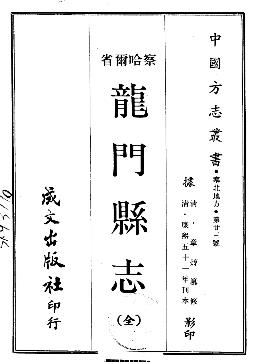 中國方志叢書•塞北地方•第廿二號
據
清•章焞纂修
清•康熙五十一年刊本
影印
察哈爾省
龍門縣志
(全)
成文出版社印行